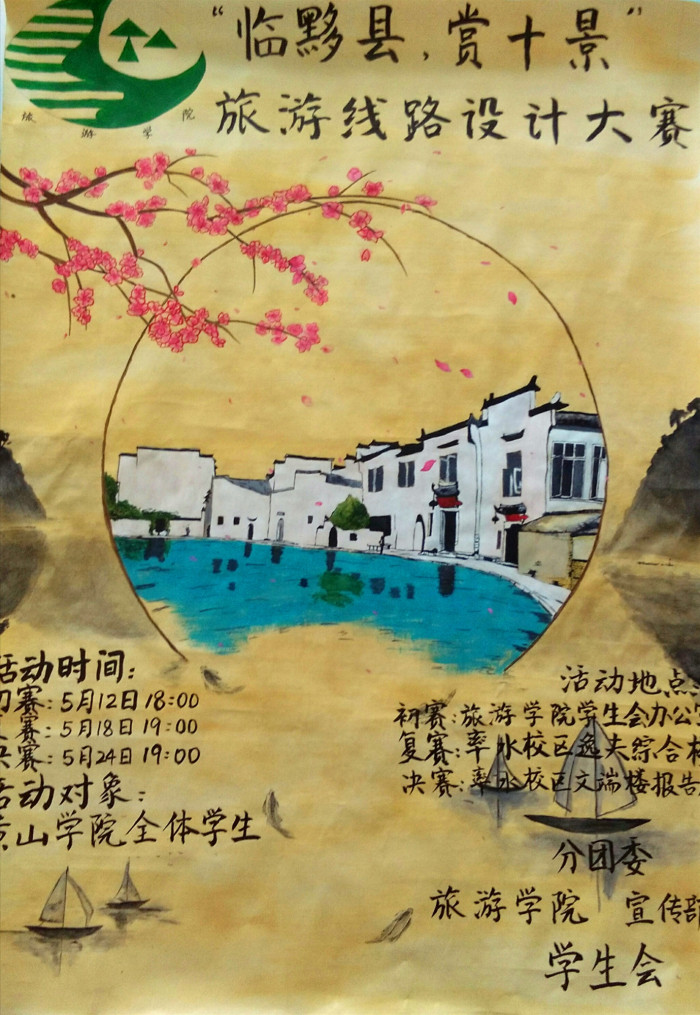 “临黟县，赏十景”
旅游线路设计大赛
旅游学院
活动时间：
初赛：5月12日18:00
复赛：5月18日19:00
决赛：5月24日19:00
活动对象：
黄山学院全体学生
活动地点：
初赛：旅游学院学生会办公室
复赛：率水校区逸夫综合
决赛：率水校区文端楼报告
分团委
旅游学院 宣传部
学生会